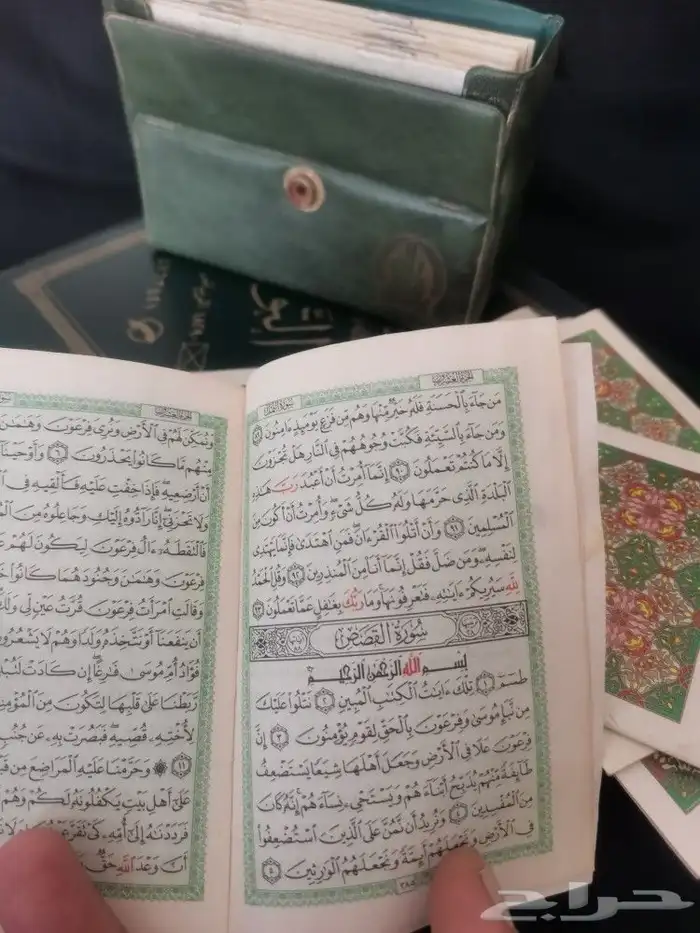 الجزء العشرون سورة النمل
مَن جَآءَ بِالْحَسَنَةِ فَلَهُ خَيْرٌ مِّنْهَا وَهُم مِّن فَزَعٍ يَوْمَئِذٍ ءَامِنُونَ ٨٩
وَمَن جَآءَ بِالسَّيِّئَةِ فَكُبَّتْ وُجُوهُهُمْ فِي النَّارِ هَلْ تُجْزَوْنَ
إِلَّا مَا كُنتُمْ تَعْمَلُونَ ٩٠ إِنَّمَآ أُمِرْتُ أَنْ أَعْبُدَ رَبَّ هَٰذِهِ
الْبَلْدَةِ الَّذِي حَرَّمَهَا وَلَهُ كُلُّ شَيْءٍ وَأُمِرْتُ أَنْ أَكُونَ مِنَ
الْمُسْلِمِينَ ٩١ وَأَنْ أَتْلُوَا الْقُرْءَانَ فَمَنِ اهْتَدَىٰ فَإِنَّمَا يَهْتَدِي
لِنَفْسِهِ وَمَن ضَلَّ فَقُلْ إِنَّمَآ أَنَا مِنَ الْمُنذِرِينَ ٩٢ وَقُلِ الْحَمْدُ
لِلَّهِ سَيُرِيكُمْ ءَايَٰتِهِ فَتَعْرِفُونَهَا وَمَا رَبُّكَ بِغَٰفِلٍ عَمَّا تَعْمَلُونَ ٩٣
سُورَةُ الْقَصَصِ
بِسْمِ اللَّهِ الرَّحْمَٰنِ الرَّحِيمِ
طسٓمٓ ١ تِلْكَ ءَايَٰتُ الْكِتَٰبِ الْمُبِينِ ٢ نَتْلُوا عَلَيْكَ
مِن نَّبَإِ مُوسَىٰ وَفِرْعَوْنَ بِالْحَقِّ لِقَوْمٍ يُؤْمِنُونَ ٣ إِنَّ
فِرْعَوْنَ عَلَا فِي الْأَرْضِ وَجَعَلَ أَهْلَهَا شِيَعًا يَسْتَضْعِفُ
طَآئِفَةً مِّنْهُمْ يُذَبِّحُ أَبْنَآءَهُمْ وَيَسْتَحْيِ نِسَآءَهُمْ إِنَّهُ كَانَ
مِنَ الْمُفْسِدِينَ ٤ وَنُرِيدُ أَن نَّمُنَّ عَلَى الَّذِينَ اسْتُضْعِفُوا
فِي الْأَرْضِ وَنَجْعَلَهُمْ أَئِمَّةً وَنَجْعَلَهُمُ الْوَٰرِثِينَ ٥
٣٨٥
الجزء العشرون
وَنُمَكِّنَ لَهُمْ فِي الْأَرْضِ وَنُرِيَ فِرْعَوْنَ وَهَٰمَٰنَ
مِنْهُم مَّا كَانُوا يَحْذَرُونَ ٦ وَأَوْحَيْنَآ
أَنْ أَرْضِعِيهِ فَإِذَا خِفْتِ عَلَيْهِ فَأَلْقِيهِ فِي
وَلَا تَحْزَنِي إِنَّا رَآدُّوهُ إِلَيْكِ وَجَاعِلُوهُ مِنَ
فَالْتَقَطَهُ ءَالُ فِرْعَوْنَ لِيَكُونَ لَهُمْ
فِرْعَوْنَ وَهَٰمَٰنَ وَجُنُودَهُمَا كَانُوا
وَقَالَتِ امْرَأَتُ فِرْعَوْنَ قُرَّتُ عَيْنٍ لِّي وَلَكَ
أَن يَنفَعَنَآ أَوْ نَتَّخِذَهُ وَلَدًا وَهُمْ لَا يَشْعُرُونَ
فُؤَادُ أُمِّ مُوسَىٰ فَٰرِغًا إِن كَادَتْ
رَّبَطْنَا عَلَىٰ قَلْبِهَا لِتَكُونَ مِنَ
لِأُخْتِهِ قُصِّيهِ فَبَصُرَتْ بِهِ عَن
١١ وَحَرَّمْنَا عَلَيْهِ الْمَرَاضِعَ مِن
عَلَىٰ أَهْلِ بَيْتٍ يَكْفُلُونَهُ لَكُمْ وَهُمْ
فَرَدَدْنَٰهُ إِلَىٰ أُمِّهِ كَيْ تَقَرَّ
أَنَّ وَعْدَ اللَّهِ حَقٌّ
حراج